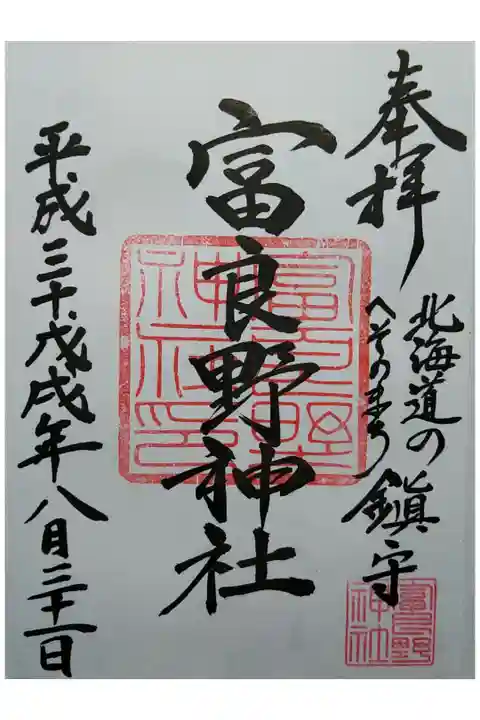 奉拝
北海道の
へそのまち
鎮守
富良野神社
平成三十戊戌年八月三十一日
富良野神社印
富良野神社